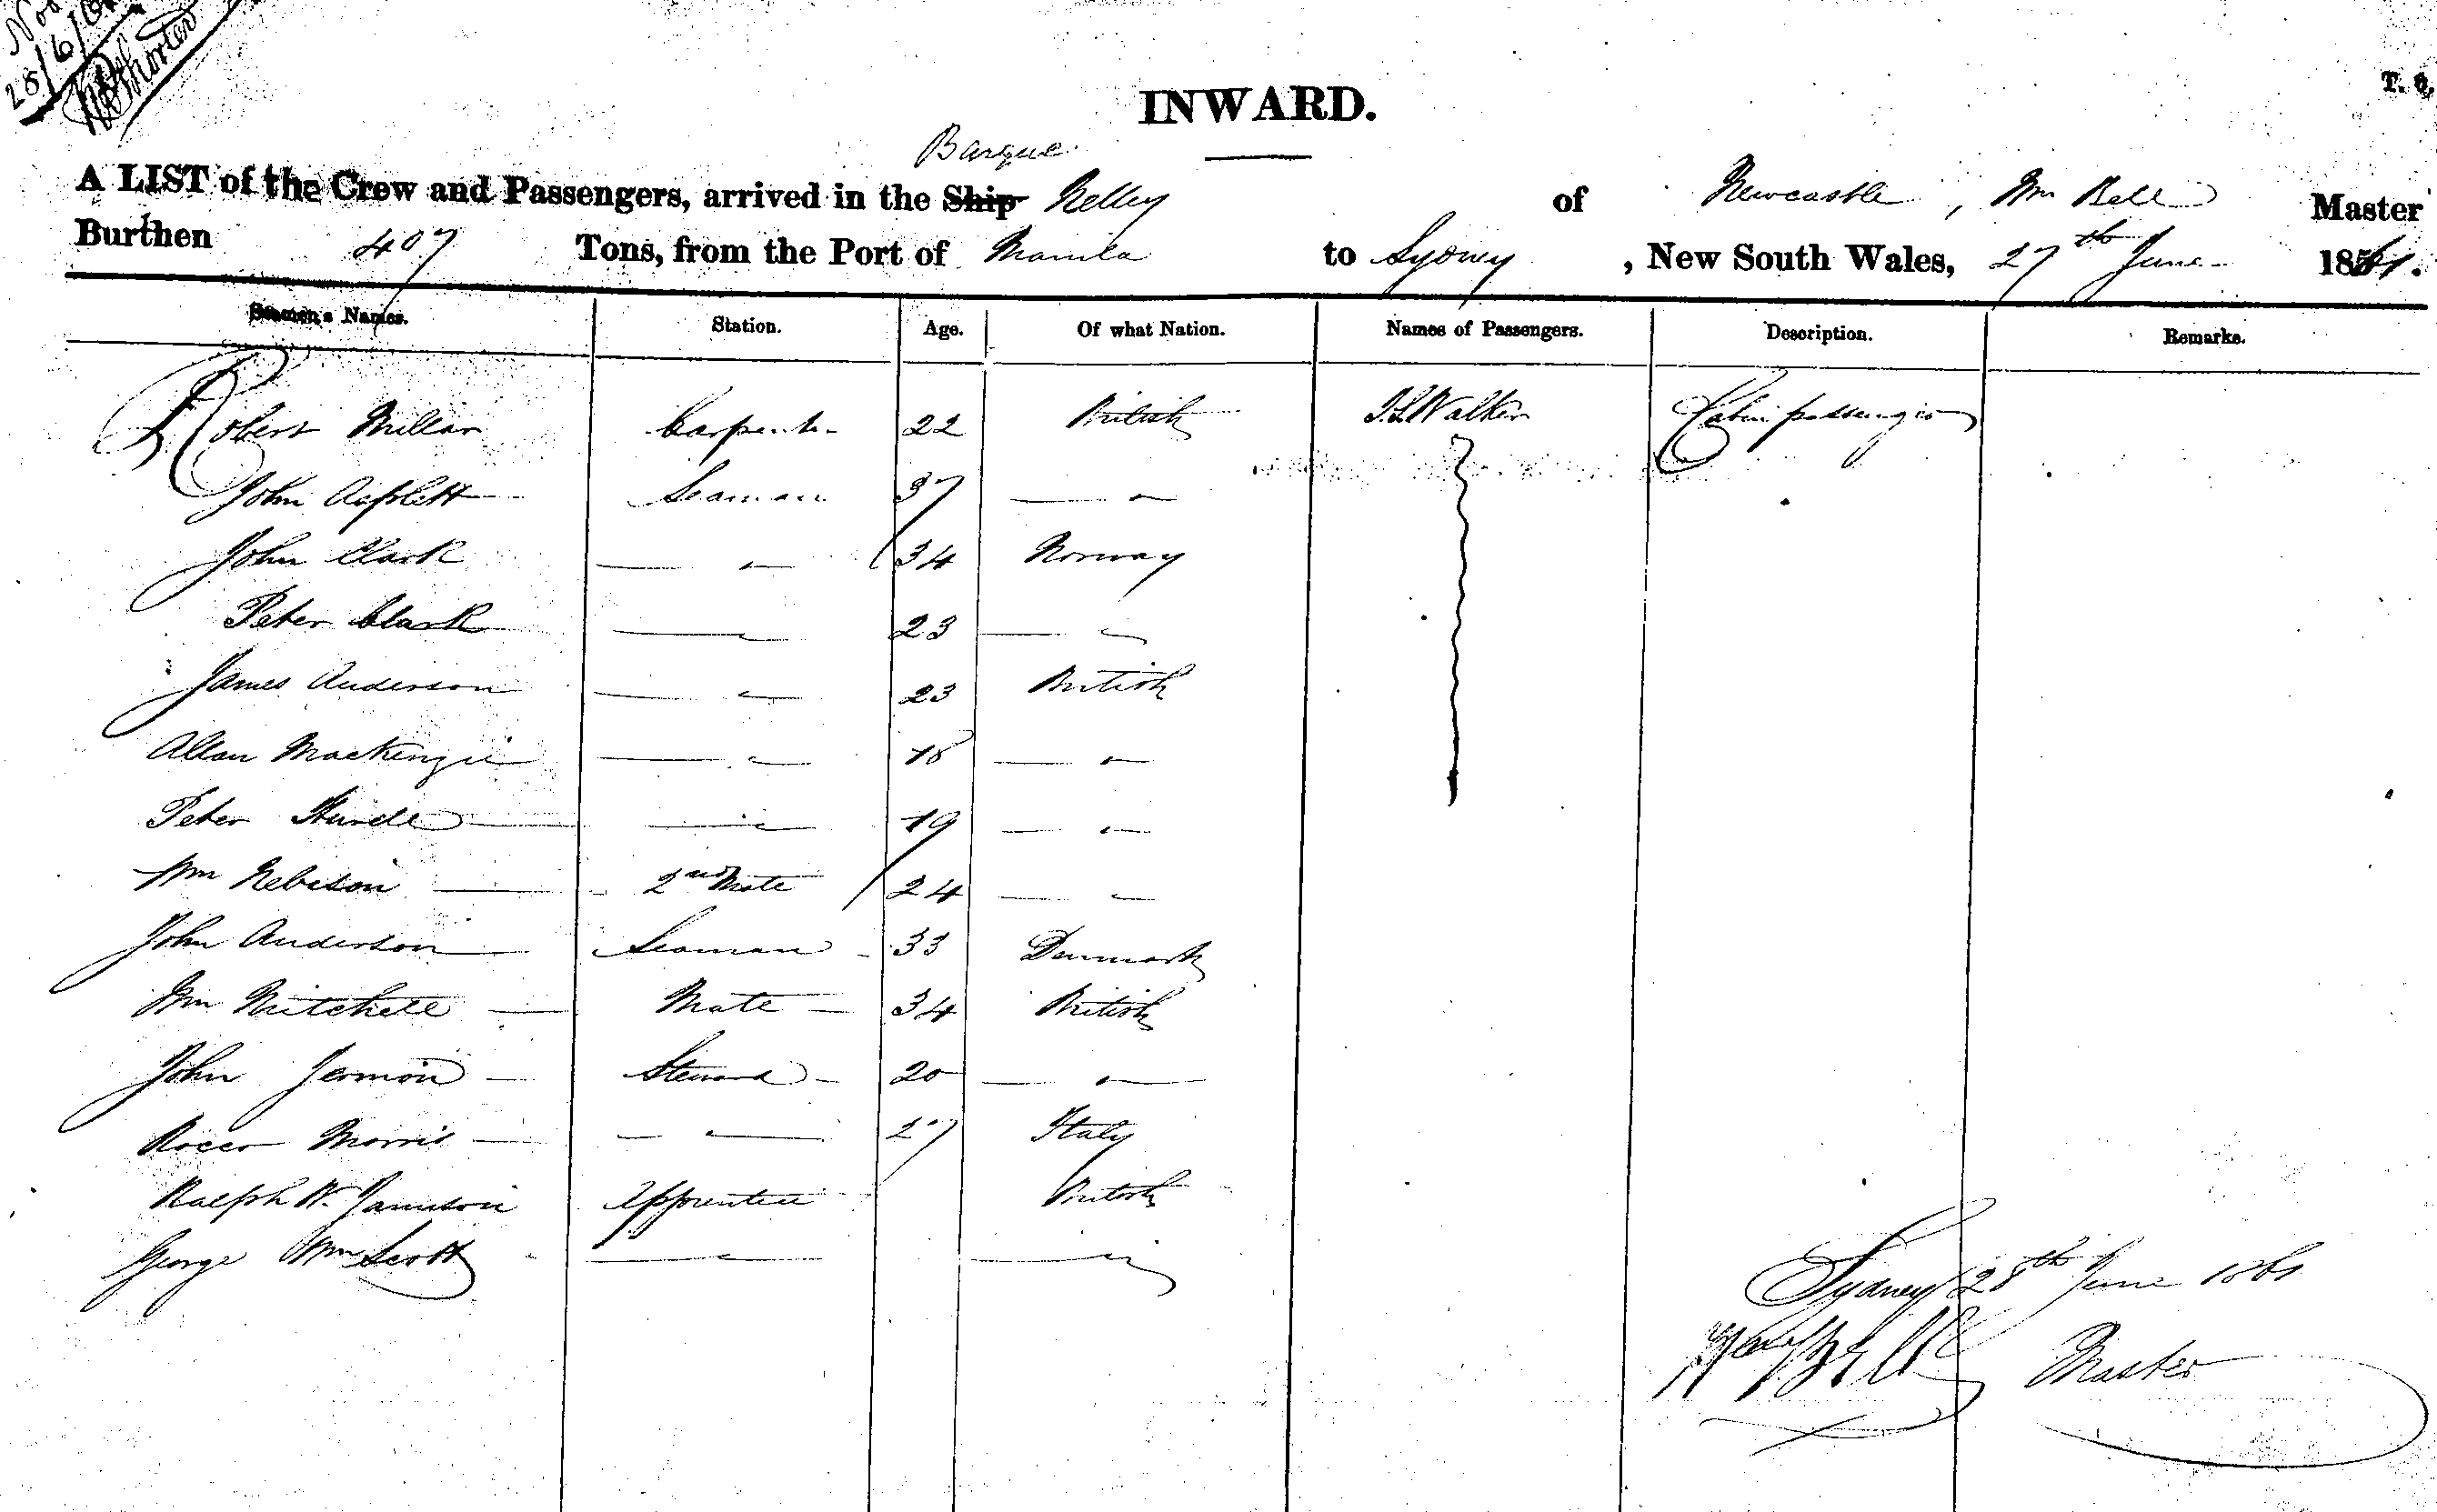 28/6/61
INWARD.
T. 6,
Barque
A LIST of the Crew and Passengers, arrived in the Ship Nelly of Newcastle, Wm Bell Master
Burthen 407 Tons, from the Port of Manila to Sydney, New South Wales, 27th June 1861.
Seamen's Names. Station. Age. Of what Nation. Names of Passengers. Description. Remarks.
Robert Millar Carpenter 22 British J.L Walker Cabin passenger
John Seaman 37 — " —
John Clark — " — 34 Norway
Peter Clark — " — 23 — " —
James Anderson — " — 23 British
Allan Mackenzie — " — 18 — " —
Peter — " — 19 — " —
Wm 2nd Mate 24 — " —
John Anderson Seaman 33 Denmark
Wm Mitchell Mate 34 British
John Jermon Steward 20 — " —
Rocco Morris — " — 27 Italy
Ralph W. Jamison Apprentice British
George Wm Scott — " — — " —
Sydney 28th June 1861
Bell Master